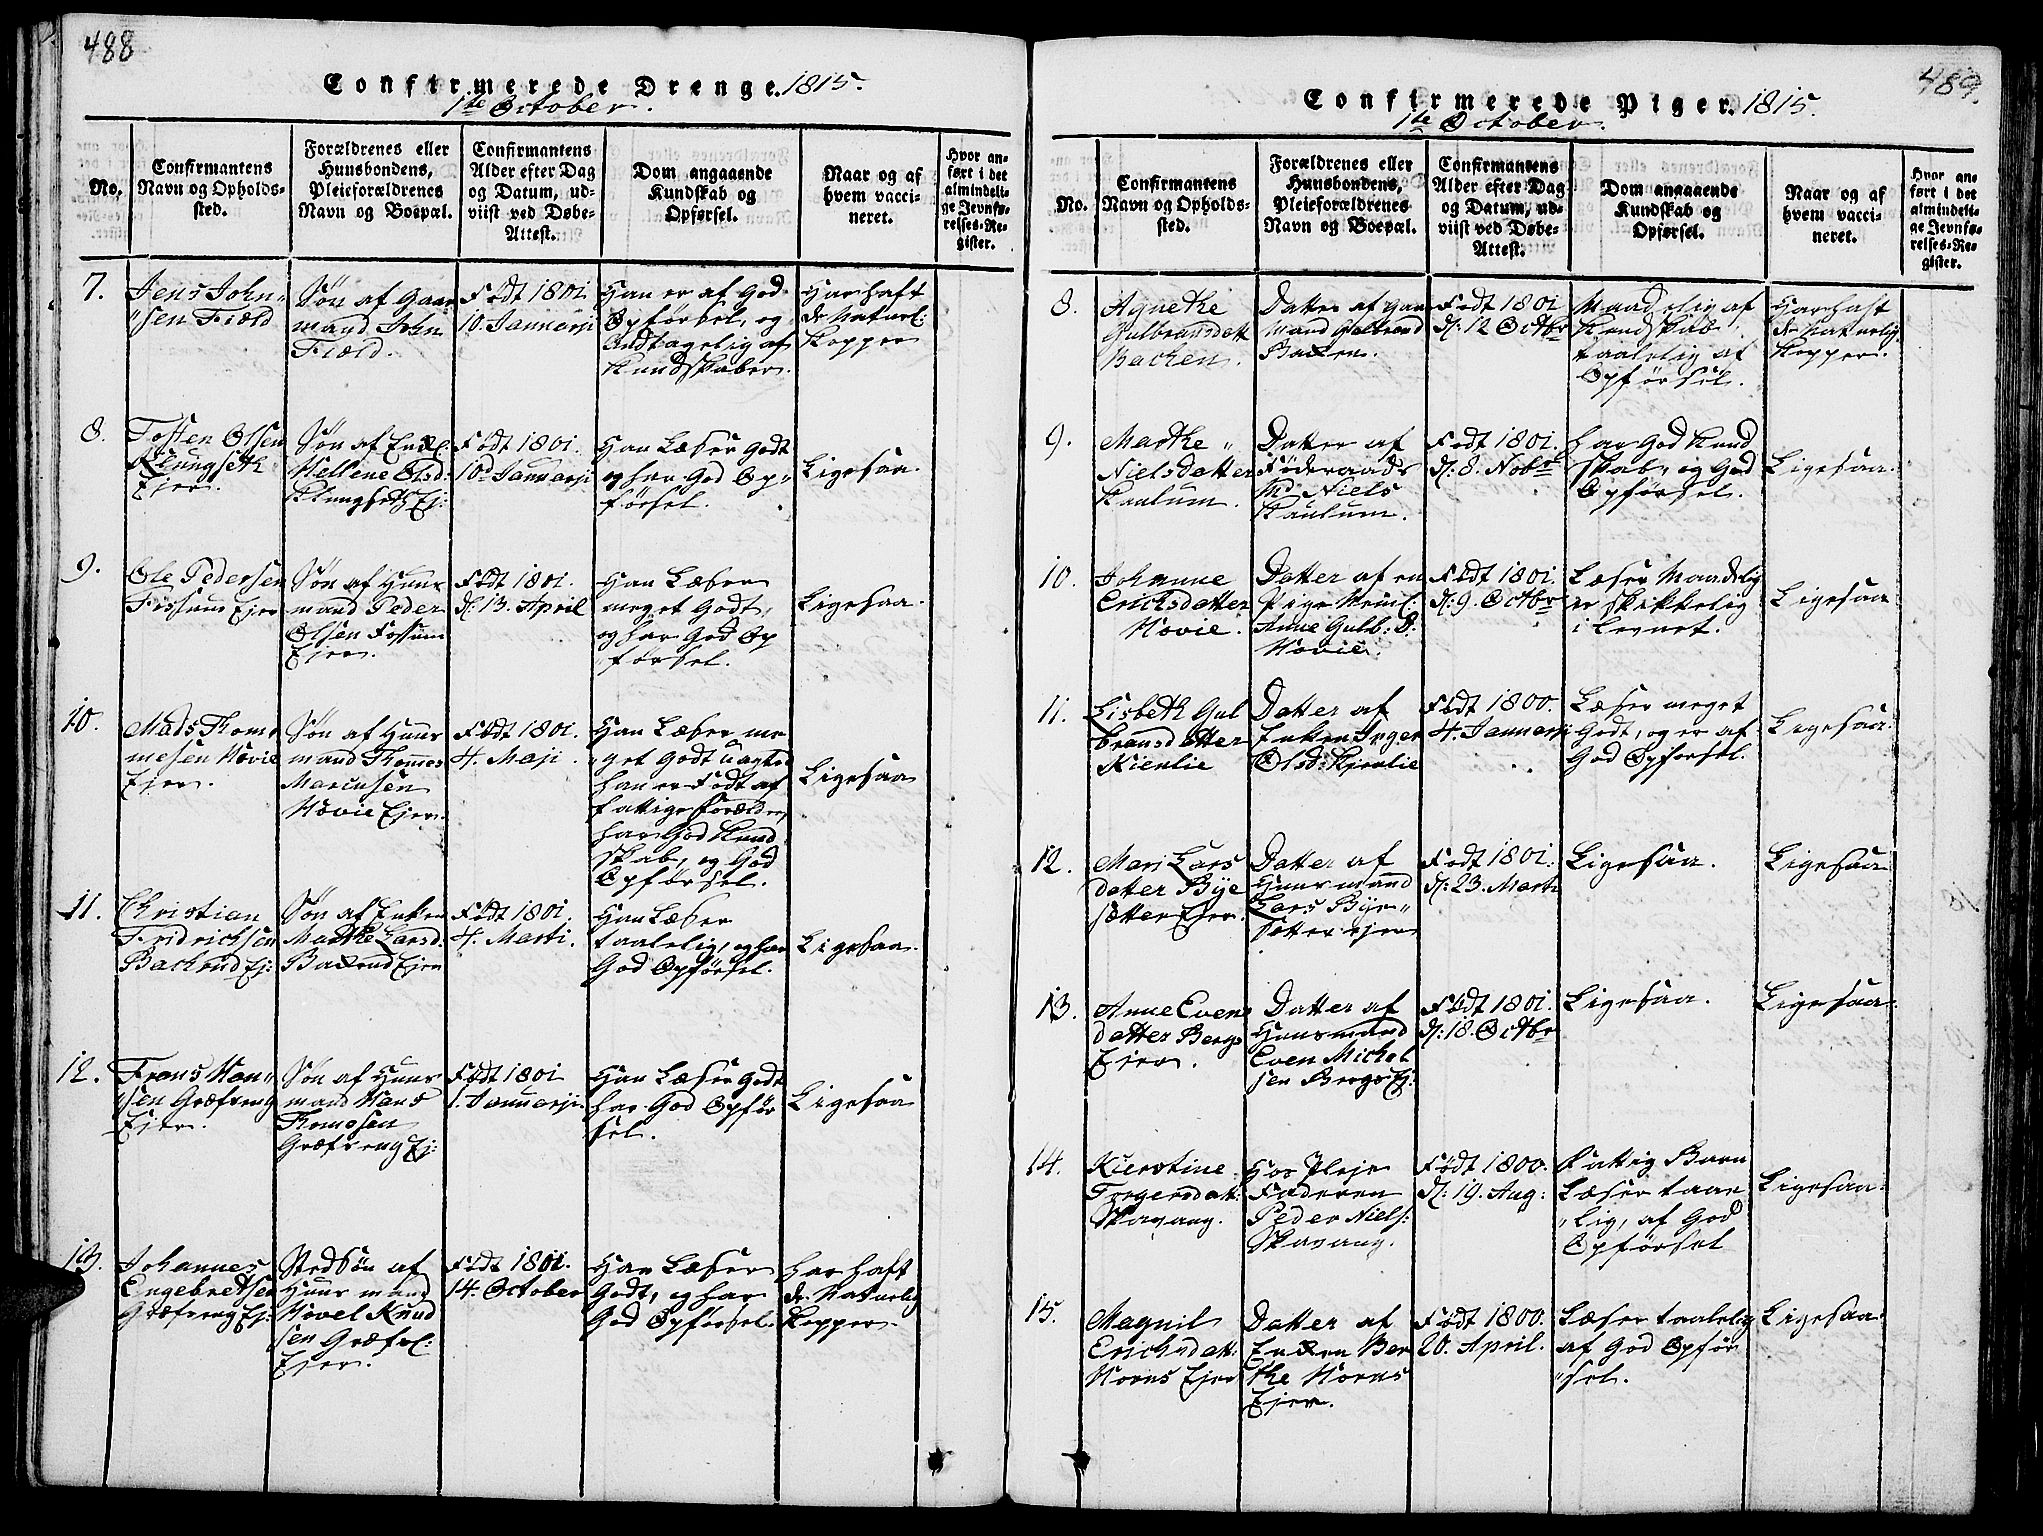 488
Confirmerede Drenge. 1815.
1te October.
No.
Confirmantens
Navn og Opholds-
sted.
Forældrenes eller
Huusbondens,
Pleieforældrenes
Navn og Boepæl.
Confirmantens
Alder efter Dag
og Datum, ud-
viist ved Døbe-
Attest.
Dom angaaende
Kundskab og
Opførsel.
Naar og af
hvem vacci-
neret.
Hvor an-
ført i det
almindeli-
ge Jevnfø-
relses-Re-
gister.
7.
Jens John-
sen Fjæld
Søn af Gaar
mand John
Fiæld.
Født 1801
10. Januarji
Han er af God
Opførsel, og
Andtagelig af
Kundskaber.
Har haft
de Naturl:
Kopper
8.
Tosten Olsen
Klungseth
Ejer.
Søn af Enkl.
Hellene Olsd:
Klungseths Ej:
Født 1801.
10d Januarji
Han Læser Godt
og har God Op-
førsel.
Ligesaa.
9.
Ole Pedersen
Fossum Ejer
Søn af Huus
mand Peder
Olsen Fossum
Ejer.
Født 1801.
d: 13. April
Han Læser
meget Godt,
og har God Op
førsel.
Ligesaa.
10.
Mads Thom
mesen Hovie
Ejer.
Søn af Huus
mand Thomes
Marcusen
Hovie Ejer.
Født 1801.
4. Maji.
Han Læser me
get Godt uagted
han er Født af
fattige Forældre,
har God Kund
skab, og God
Opførsel.
Ligesaa
11.
Christian
Fridrichsen
Bachrud Ej:
Søn af Enken
Marthe Larsd.
Bakrud Ejer
Født 1801.
4. Marti.
Han Læser
taalelig, og har
God Opførsel.
Ligesaa.
12.
Frans Han-
sen Græfseng
Ejer.
Søn af Huus
mand Hans
Thomesen
Græfseng Ej:
Født 1801
1. Januarji.
Han Læser Godt
har God Opfør
sel.
Ligesaa
13.
Johannes
Engebretsen
Græfseng Ej:
Stedsøn af
Huus mand
Hovel Knud
sen Græfse:
Ejer.
Født 1801.
14. October
Han Læser
Godt, og har
God Opførsel.
har haft
de Naturlig
Kopper.
489.
Confirmerede Piger. 1815.
1te October.
No.
Confirmantens
Navn og Opholds-
sted.
Forældrenes eller
Huusbondens,
Pleieforældrenes
Navn og Boepæl.
Confirmantens
Alder efter Dag
og Datum, ud-
viist ved Døbe-
Attest.
Dom angaaende
Kundskab og
Opførsel.
Naar og af
hvem vacci-
neret.
Hvor an-
ført i det
almindeli-
ge Jevnfø-
relses-Re-
gister.
8.
Agnethe
Gulbransdatt
Bachen.
Datter af Gaar
mand Gulbrand
Baken.
Født 1801
d: 12 Octbr
Maadelig af
Kundskab,
taalelig af
Opførsel.
Har haft
de Naturlig
Kopper.
9.
Marthe
Nielsdatter
Kaulum.
Datter af
Føderaads
Md. Niels
Kaulum.
Født 1801.
d: 8. Nobr
har God Kund
skab, og God
Opførsel.
Ligesaa.
10.
Johanne
Erichsdatter
Hovie.
Datter af en
Pige Navnl:
Anne Gulb: D:
Hovie.
Født 1801.
d: 9. Octbr
Læser Maadelig
er skikkelig
i Levnet.
Ligesaa
11.
Lisbeth Gul
bransdatter
Kienlie
Datter af
Enken Inger
Olsd: Kjenlie
Født 1800.
4. Januarji
Læser meget
Godt, og er af
God Opførsel.
Ligesaa.
12.
Mari Lars
datter Bye
sætter Ejer.
Datter af
Huusmand
Lars Bye-
sætter ejer
Født 1801.
d: 23. Marti
Ligesaa.
Ligesaa
13.
Anne Evens
datter Bergs
Ejer.
Datter af
Huusmand
Even Michel
sen Bergs Ej:
Født 1801.
d: 18. Octbr
Ligesaa.
Ligesaa.
14.
Kierstine
Torgersdatt:
Skavang.
Hos Pleje
Faderen
Peder Niels:
Skavang.
Født 1800.
d: 19. Aug:
Fattig Barn
Læser taae
lig, af God
Opførsel
Ligesaa.
15.
Magnil
Erichsdatt:
Horns Ejer
Datter af
Enken Ber
the Horns
Ejer.
Født 1800.
20. April.
Læser taalelig
af God Opfør
sel.
Ligesaa.